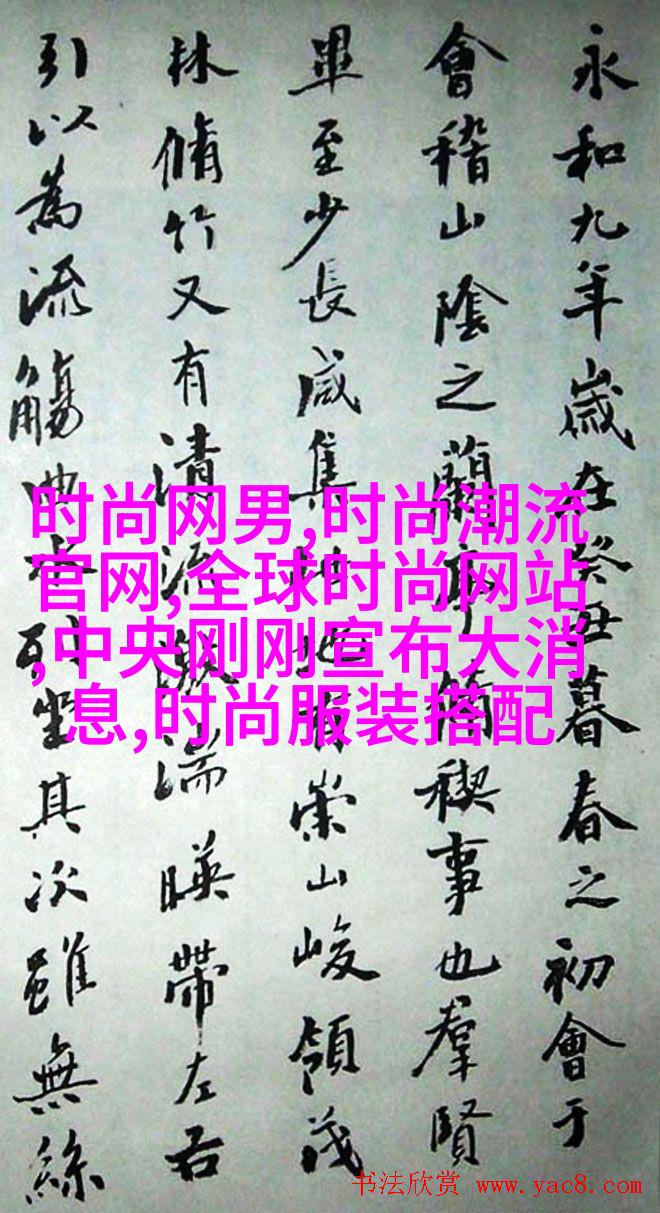 永和九年歲在癸丑暮春之初會于
會稽山陰之蘭亭脩禊事也羣賢
畢至少長咸集此地有崇山峻領茂
林脩竹又有清流激湍暎帶左右
引以為流觴曲水列坐其次雖無絲
时尚网男,时尚潮流
官网,全球时尚网站
,中央刚刚宣布大消
息,时尚服装搭配
书法欣赏 www.yac8.com